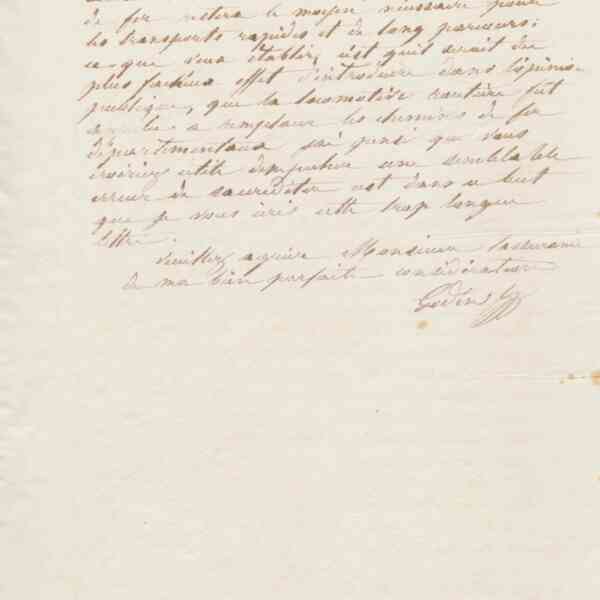 de fer restera le moyen nécessaire pour
les transports rapides et de long parcours;
ce que veux établir, c'est qu'il serait du
plus fâcheux effet d'introduire dans l'opinion
publique, que la locomotive routière fut
appelée a remplacer les chemins de fer
départementaux j'ai pensé que vous
croiriez utile d'empêcher une semblable
erreur de s'accréditer c'est dans ce but
que je vous écris cette trop longue
lettre.
Veuillez agréer Monsieur l'assurance
de ma bien parfaite considération
Godin